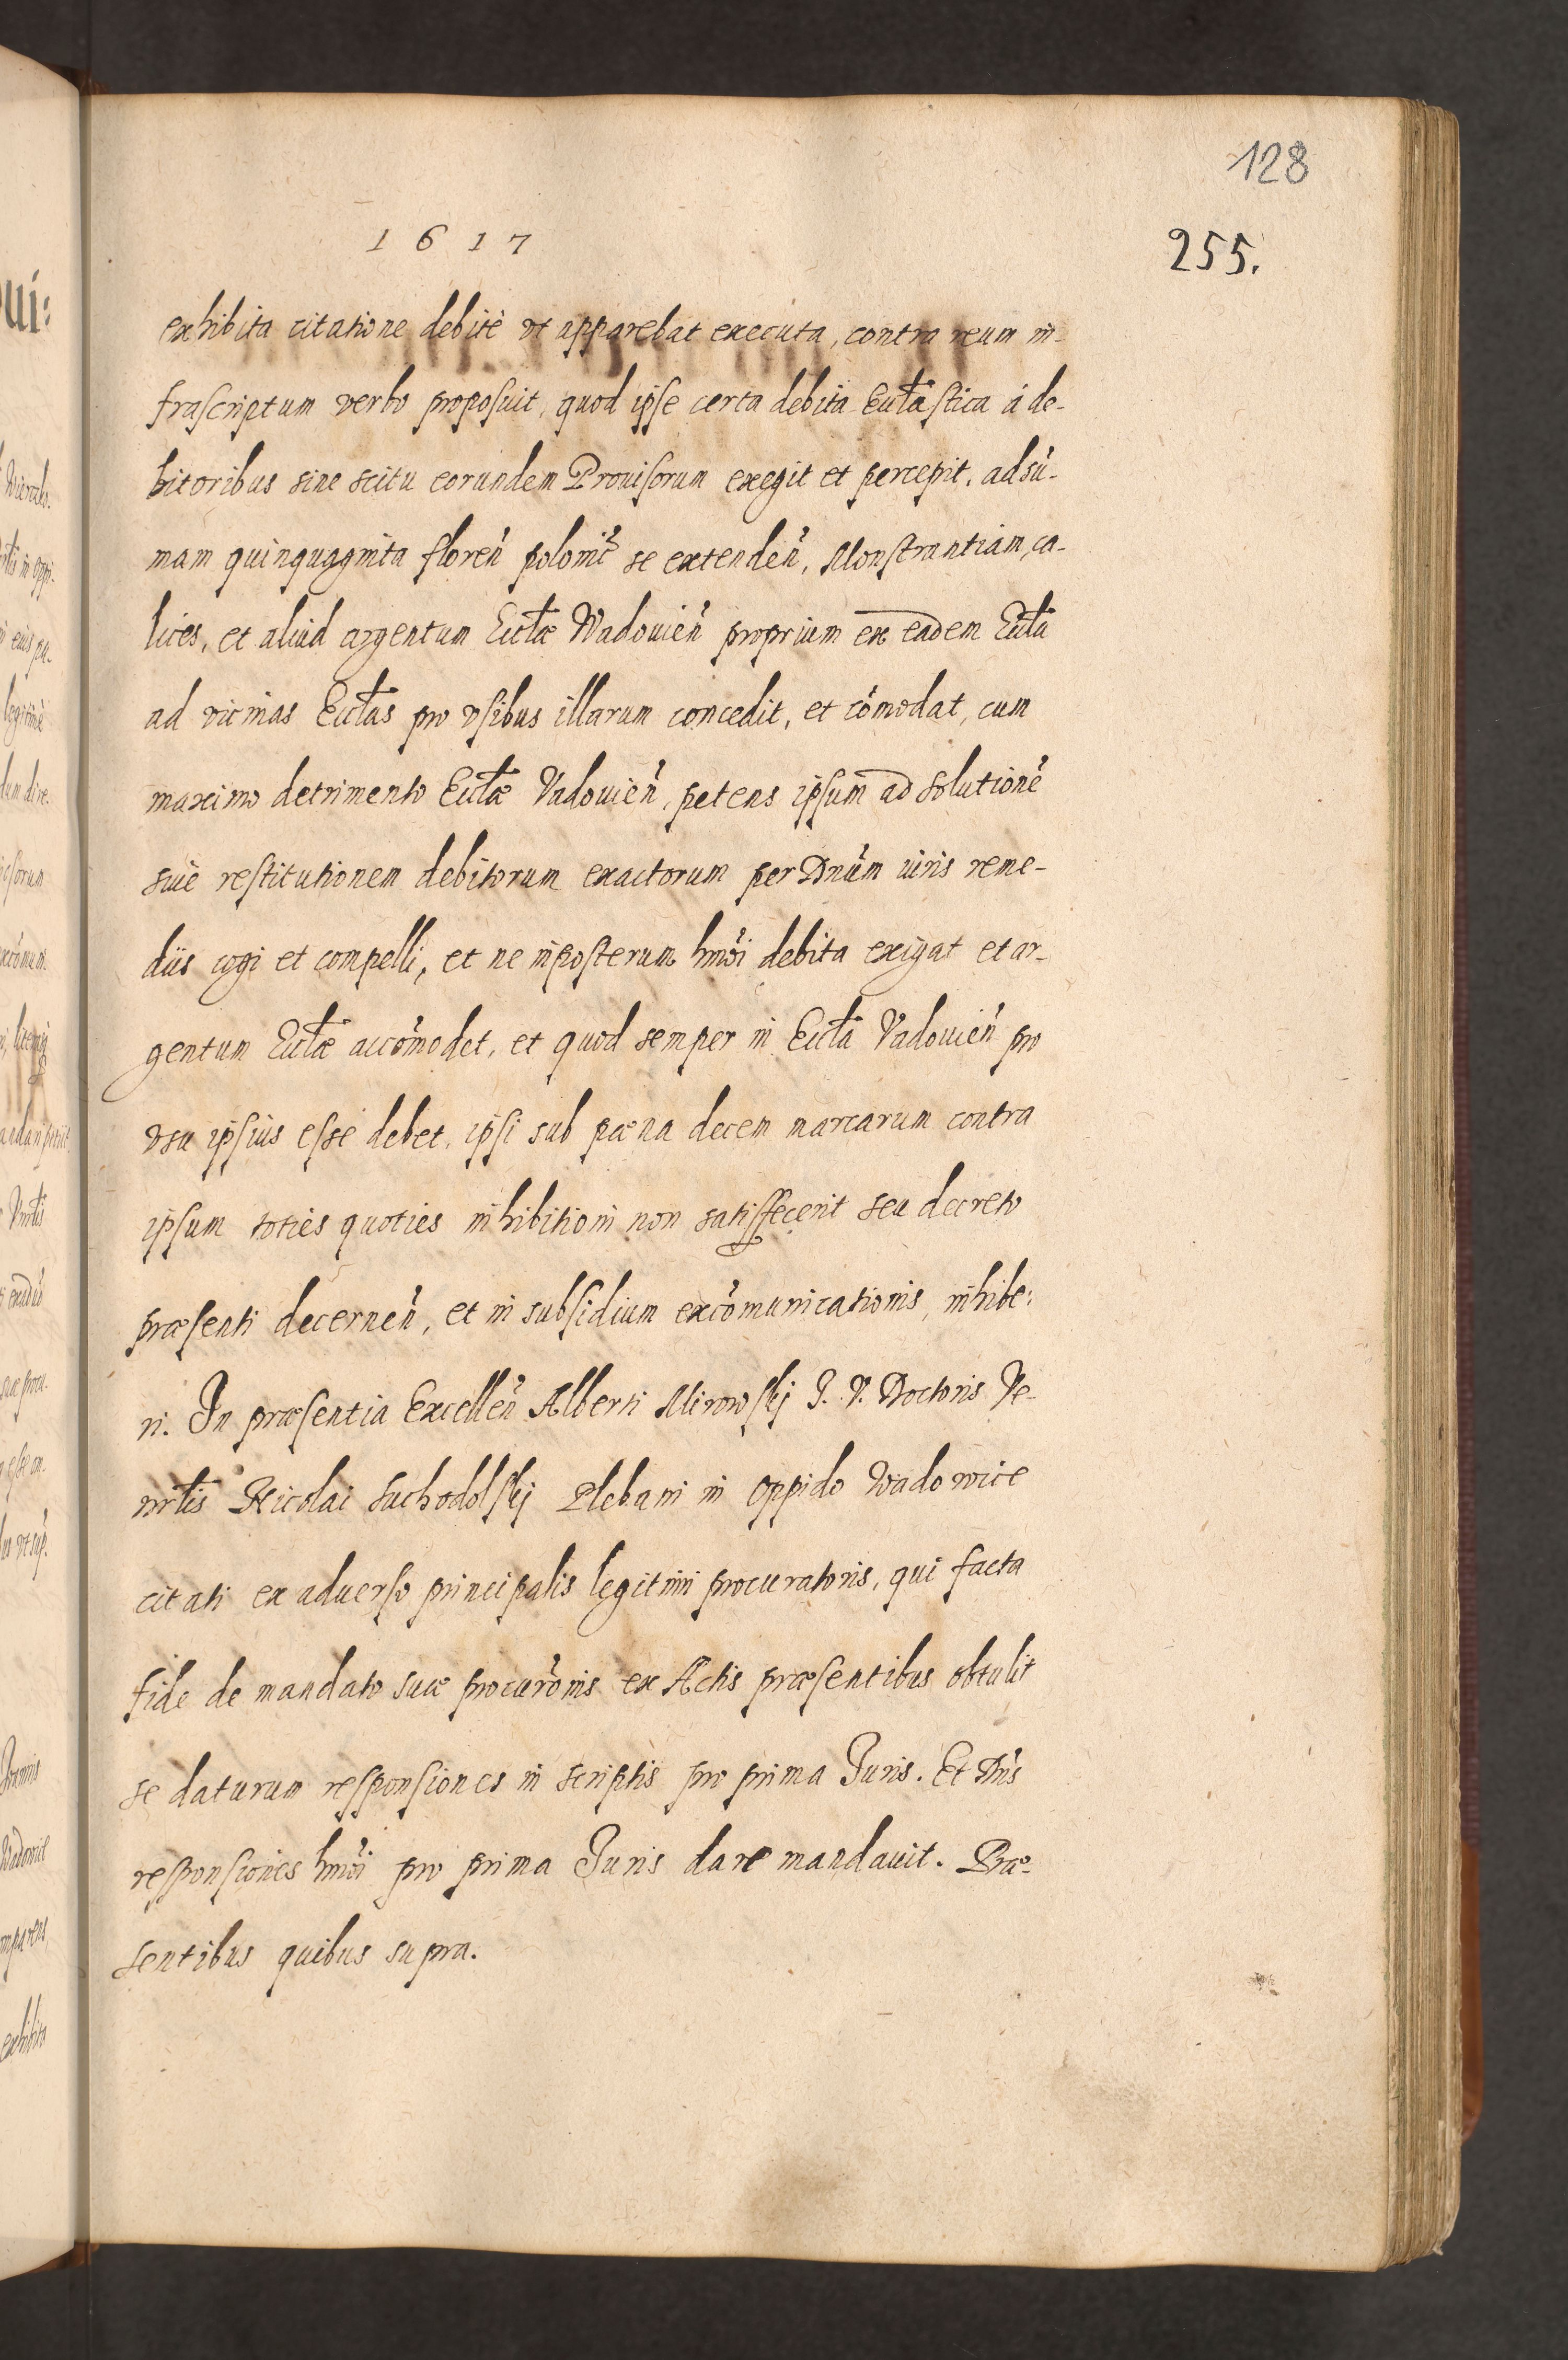 128
1617
255.
exhibita citatione debitè vt apparebat executa, contra reum in-
frascriptum verbo proposuit, quod ipse certa debita Eccl̃astica á de-
bitoribus sine scitu eorundem Prouisorum exegit et percepit, ad sũ-
mam quinquaginta floreñ polonic̃ se extendeñ, Monstrantiam, ca-
lices, et aliud argentum Eccl̃æ Wadouieñ proprium ex eadem Eccl̃a
ad vicinas Eccl̃as pro vsibus illarum concedit, et cõmodat, cum
maximo detrimento Eccl̃æ Vadouieñ, petens ipsum ad solutionẽ
siue restitutionem debitorum exactorum per Dnũm iuris reme-
diis cogi et compelli, et ne inposterum hmõi debita exigat et ar-
gentum Eccl̃æ accõmodet, et quod semper in Eccl̃a Vadouieñ pro
vsu ipsius esse debet, ipsi sub pæna decem marcarum contra
ipsum toties quoties inhibitioni non satisfecerit seu decreto
præsenti decerneñ, et in subsidium excõmunicationis, inhibe:
ri. In præsentia Excelleñ Alberti Mirowskj J. V. Doctoris Ve-
nrl̃is Nicolai Suchodolskj Plebani in oppido Wadowice
citati ex aduerso principalis legitimi procuratoris, qui facta
fide de mandato suæ procurõnis ex Actis præsentibus obtulit
se daturum responsiones in scriptis pro prima Juris. Et Dñs
responsiones hmõi pro prima Juris dare mandauit. Præ-
sentibus quibus supra.